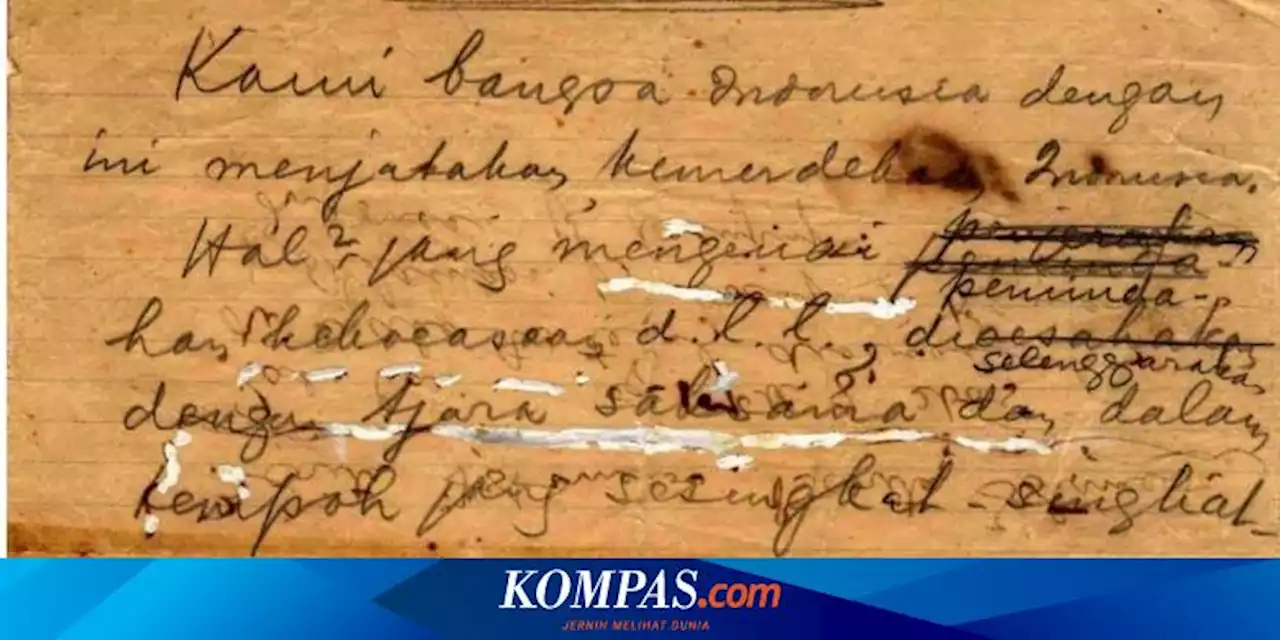 Kami bangsa Indonesia dengan
ini menjatakan kemerdekaan Indonesia.
Hal² jang mengenai
peminda-
han kekoeasaan d.l.l., dioesahakan
selenggarakan
dengan tjara saksama dan dalam
tempoh jang sesingkat-singkat-
KOMPAS.com
JERNIH MELIHAT DUNIA